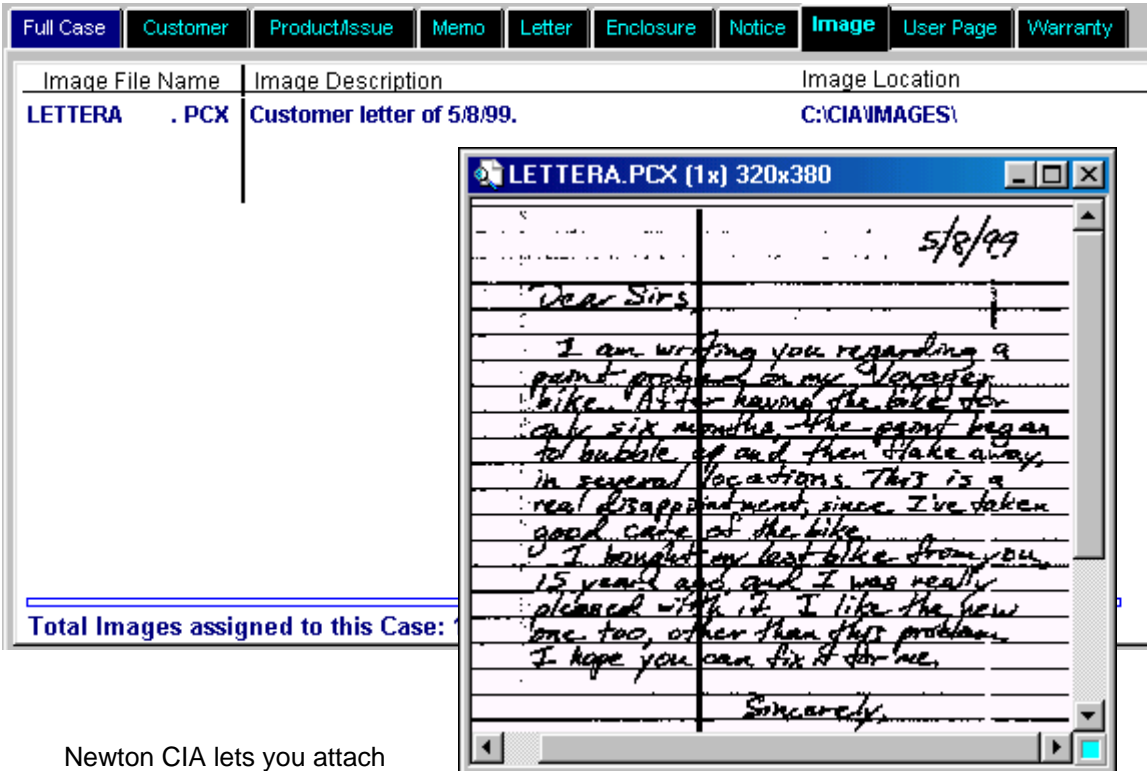 Full Case Customer Product/Issue Memo Letter Enclosure Notice Image User Page Warranty
Image File Name Image Description Image Location
LETTERA . PCX Customer letter of 5/8/99. C:\CIA\IMAGES\
LETTERA.PCX (1x) 320x380
5/8/99
Dear Sirs,
I am writing you regarding a
paint problem on my Voyager
bike. After having the bike for
only six months, the paint began
to bubble up and then flake away,
in several locations. This is a
real disappointment, since I've taken
good care of the bike.
I bought my last bike from you
15 years ago and I was really
pleased with it. I like the new
one too, other than this problem.
I hope you can fix it for me.
Sincerely,
Total Images assigned to this Case:
Newton CIA lets you attach